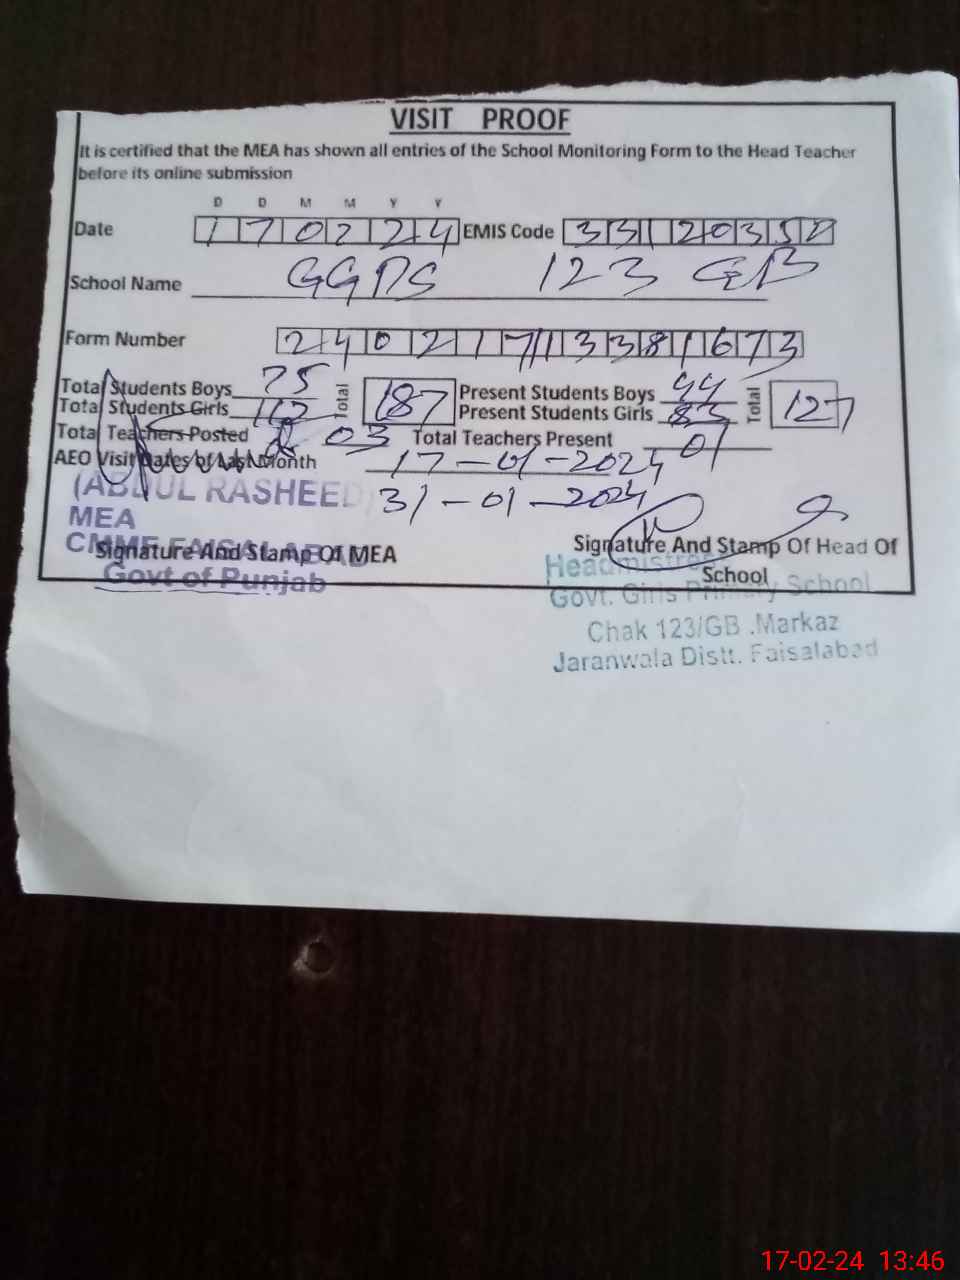 VISIT PROOF
It is certified that the MEA has shown all entries of the School Monitoring Form to the Head Teacher
before its online submission
D D M M Y Y
Date 170224 EMIS Code 33120350
School Name GGPS 123 GB
Form Number 240217113381673
Total Students Boys 75 Total 187 Present Students Boys 44 Total 127
Total Students Girls 112 Present Students Girls 83
Total Teachers Posted 03 Total Teachers Present 01
AEO Visit Dates of Last Month 17-01-2024
31-01-2024
(ABDUL RASHEED)
MEA
CMMF FAISALABAD
Govt of Punjab
Signature And Stamp Of MEA
Signature And Stamp Of Head Of
School
Headmistress
Govt. Girls Primary School
Chak 123/GB .Markaz
Jaranwala Distt. Faisalabad
17-02-24 13:46